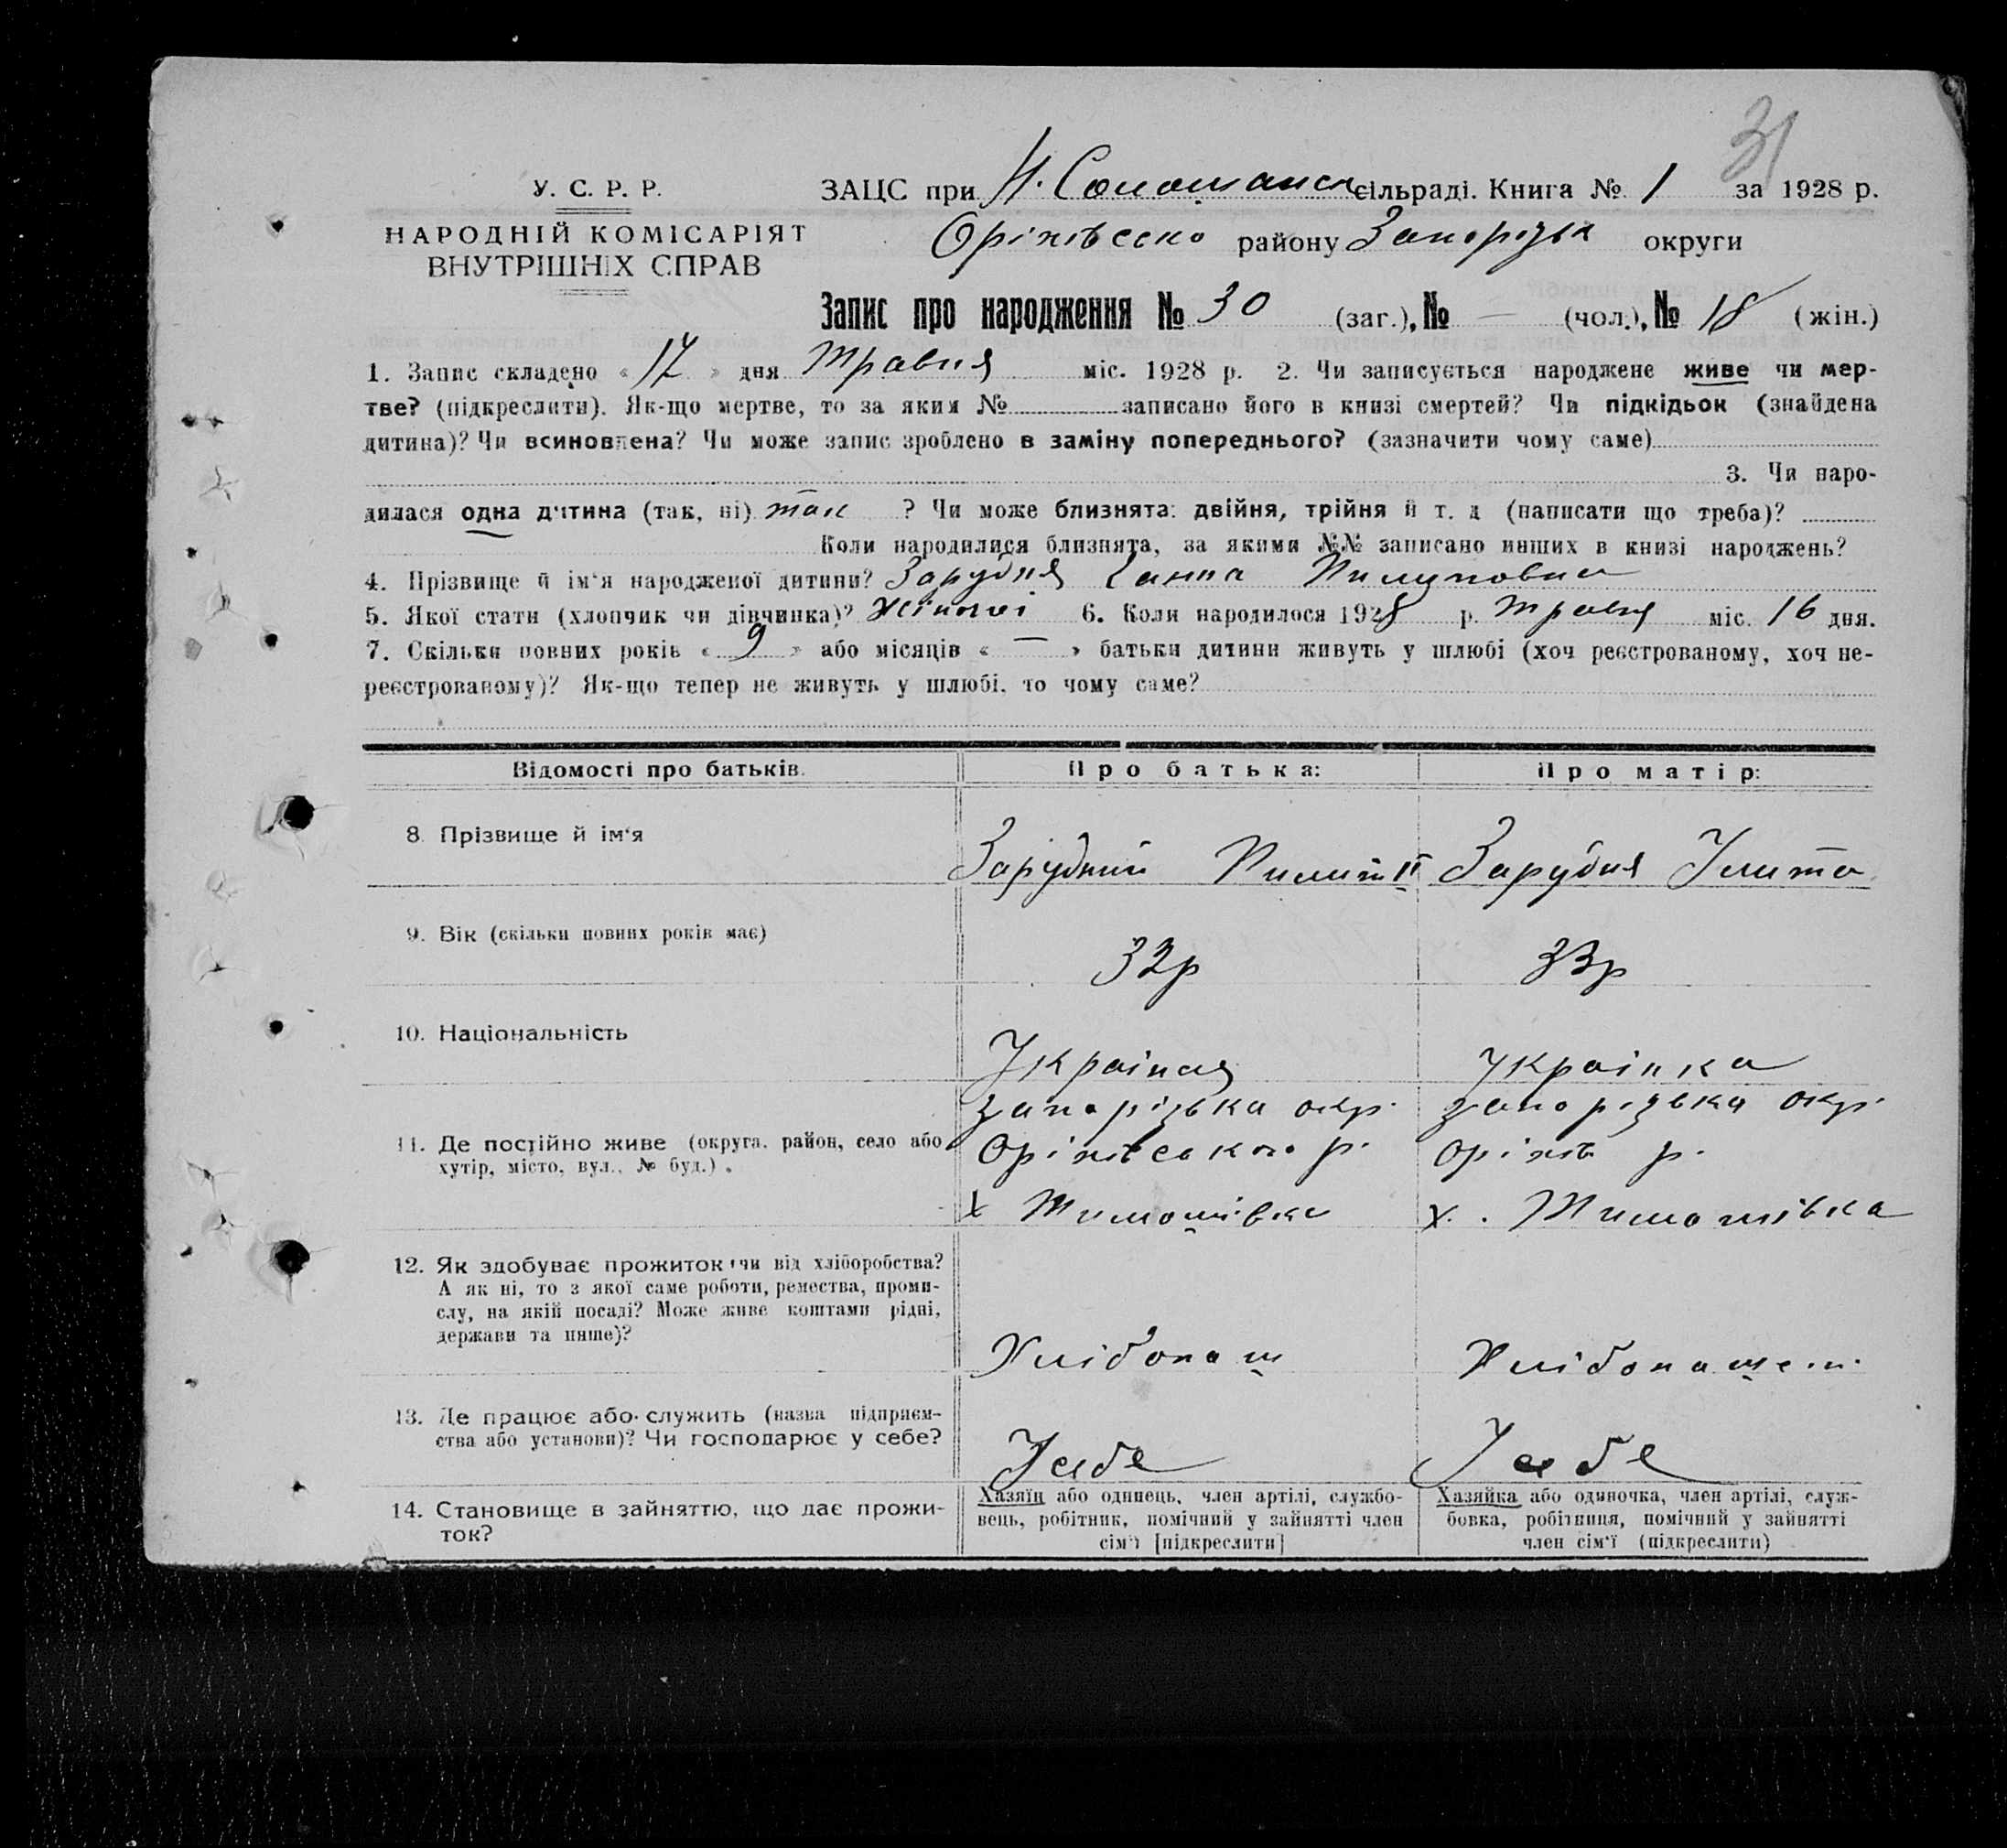 31
У. С. Р. Р.
НАРОДНІЙ КОМІСАРІЯТ
ВНУТРІШНІХ СПРАВ
ЗАЦС при Н. сільраді. Книга № 1 за 1928 р.
району округи
Запис про народження № 30 (заг.), № — (чол.), № 18 (жін.)
1. Запис складено « 17 » дня Травня міс. 1928 р. 2. Чи записується народжене живе чи мер-
тве? (підкреслити). Як-що мертве, то за яким № записано його в книзі смертей? Чи підкідьок (знайдена
дитина)? Чи всиновлена? Чи може запис зроблено в заміну попереднього? (зазначити чому саме)
3. Чи наро-
дилася одна дитина (так, ні) так ? Чи може близнята: двійня, трійня й т. д (написати що треба)?
Коли народилися близнята, за якими №№ записано инших в книзі народжень?
4. Прізвище й ім‘я народженої дитини? Зарудня Ганна Пилиповна
5. Якої стати (хлопчик чи дівчинка)? жіночої 6. Коли народилося 1928 р. травня міс. 16 дня.
7. Скільки повних років « 9 » або місяців « — » батьки дитини живуть у шлюбі (хоч реєстрованому, хоч не-
реєстрованому)? Як-що тепер не живуть у шлюбі, то чому саме?
Відомості про батьків. Про батька: Про матір:
8. Прізвище й ім‘я Зарудний Пилип Зарудня Улита
9. Вік (скільки повних років має) 32р 33р
10. Національність Українец українка
11. Де постійно живе (округа, район, село або хутір, місто, вул., № буд.).
Запорізька окр. запорізька окр.
Оріхівського р. Оріхів р.
х Тимошівка х. Тимошівка
12. Як здобуває прожиток, чи від хліборобства?
А як ні, то з якої саме роботи, ремества, проми-
слу, на якій посаді? Може живе коштами рідні,
держави та инше)?
Хлібопаш Хлібопашен.
13. Де працює або служить (назва підприєм-
ства або установи)? Чи господарює у себе?
У себе У себе
14. Становище в зайняттю, що дає прожи-
ток?
Хазяїн або одинець, член артілі, службо-
вець, робітник, помічний у зайнятті член
сім‘ї [підкреслити]
Хазяйка або одиночка, член артілі, служ-
бовка, робітниця, помічний у зайнятті
член сім‘ї (підкреслити)